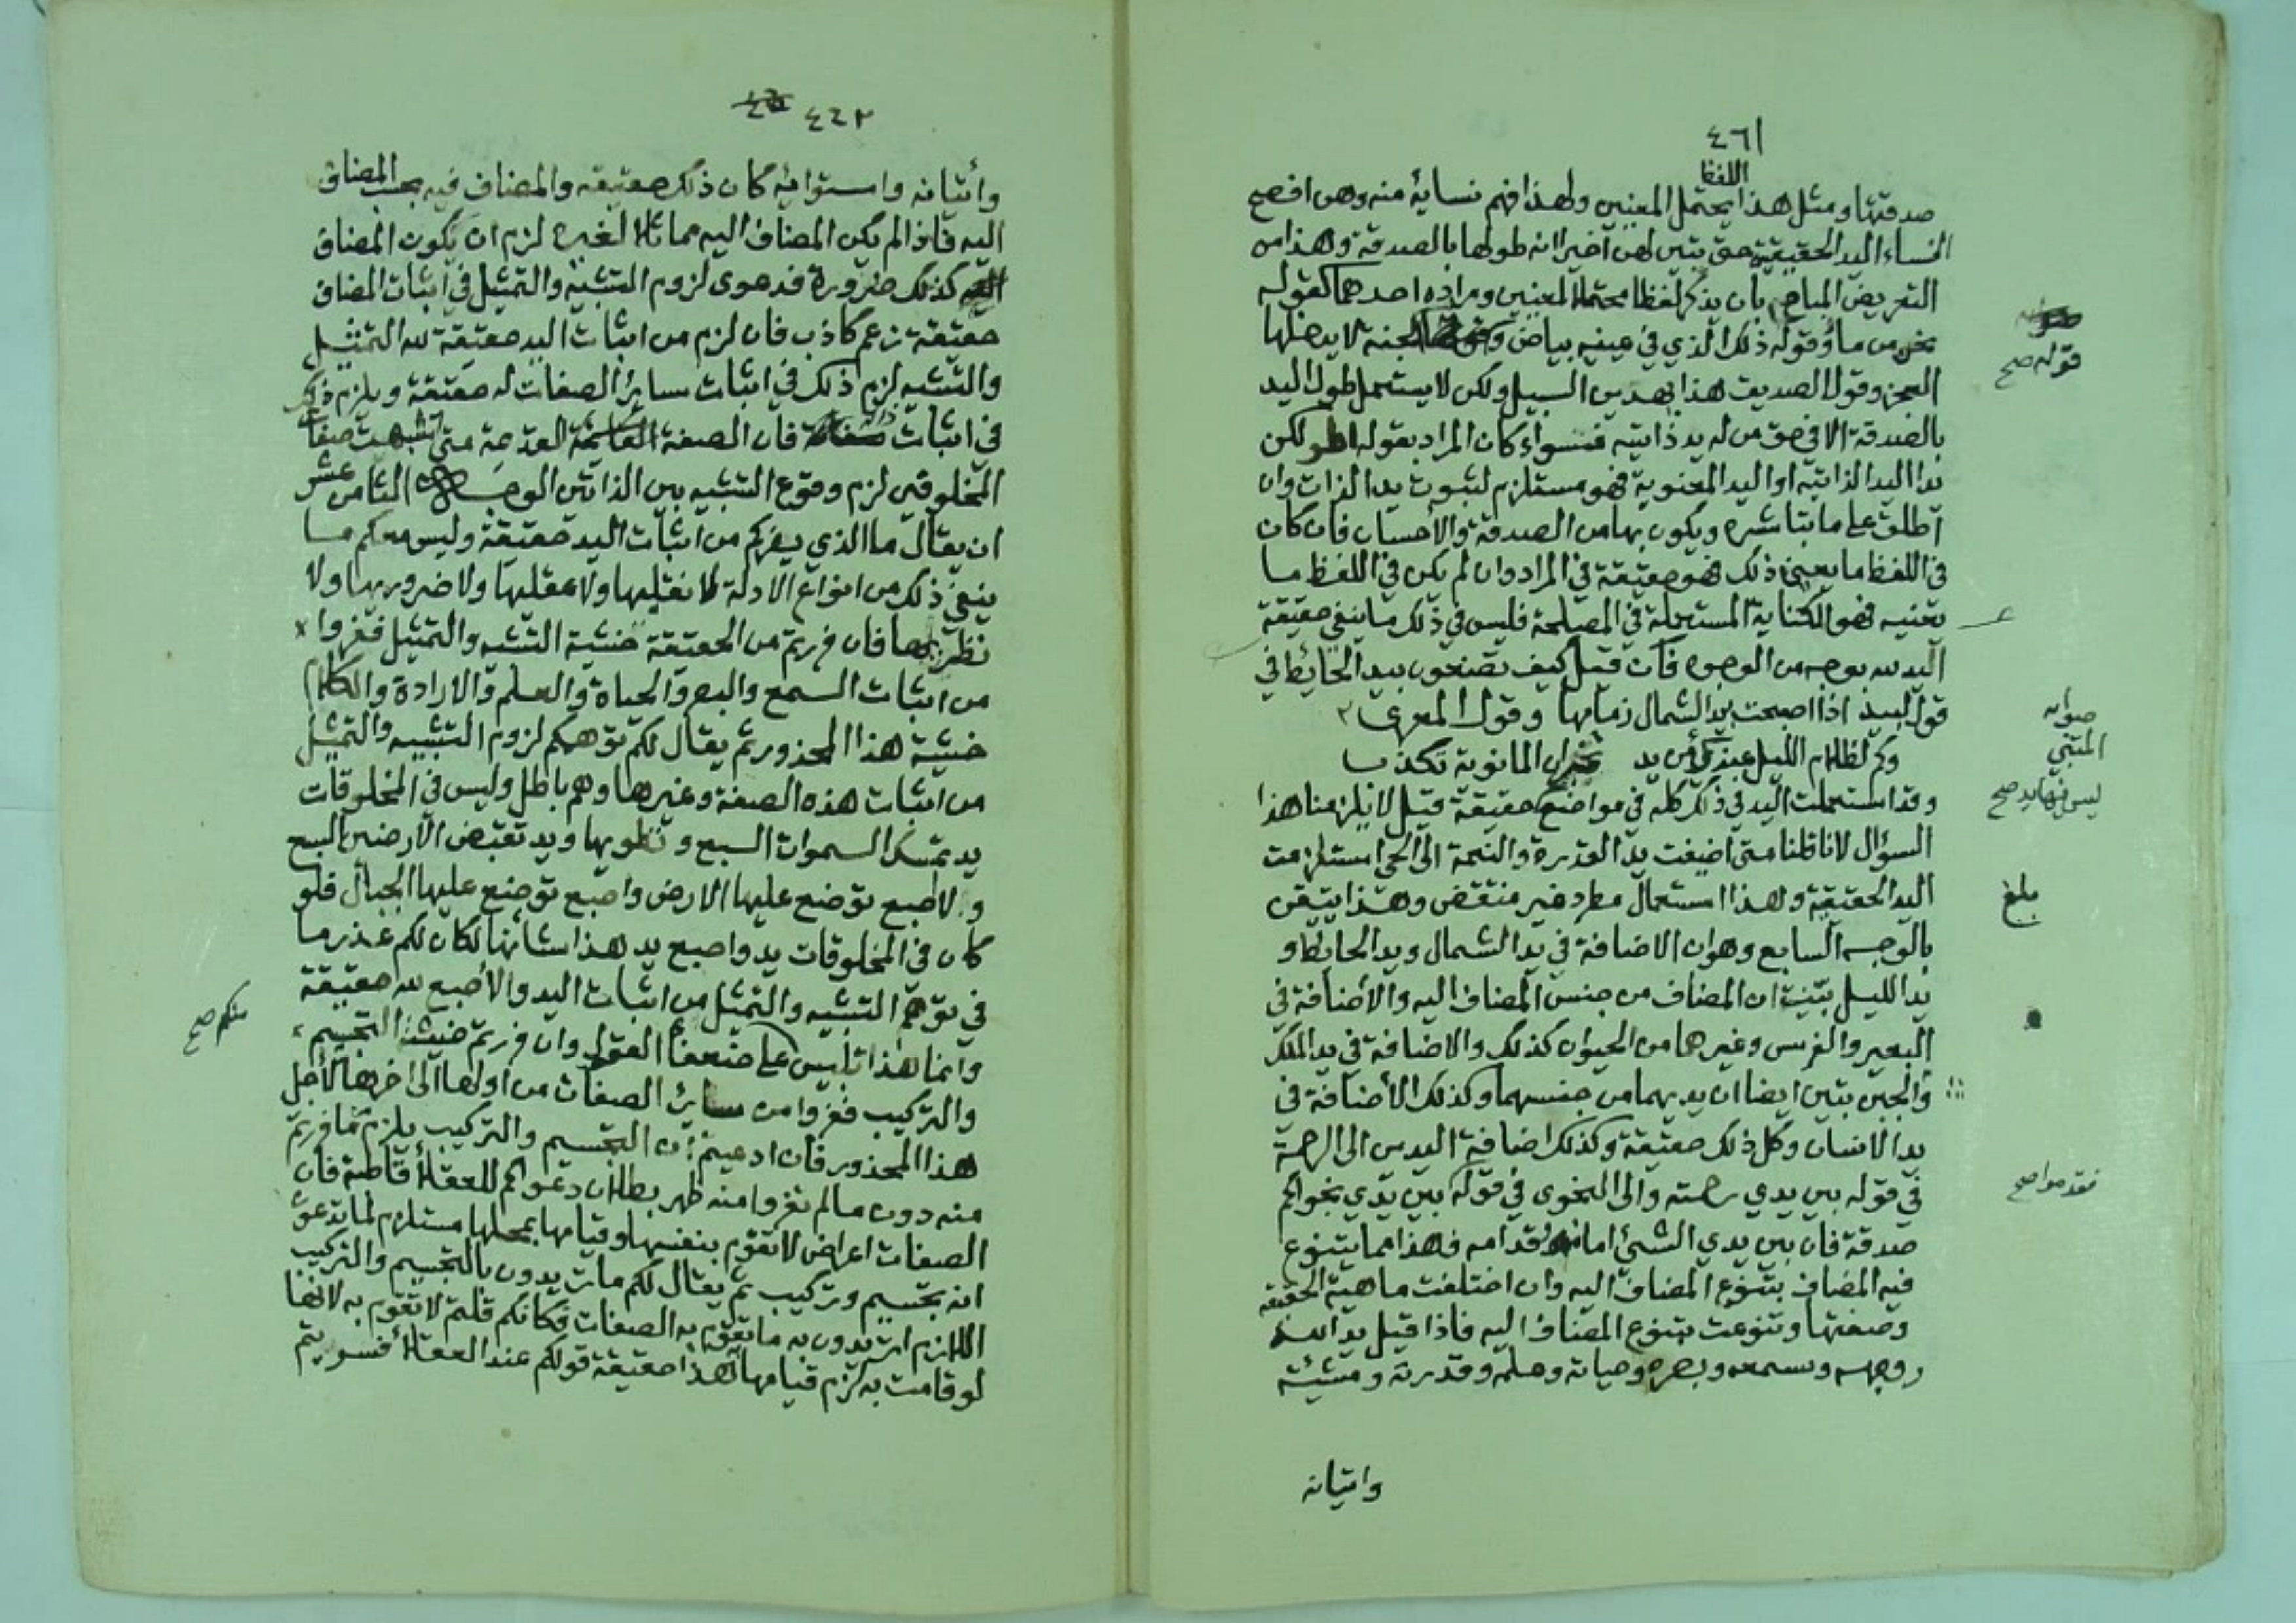 ٤٦١
اللفظ
صدقتها ومثل هذا يحتمل المعنيين ولهذا فهم نسايه منه وهن افصح
النساء اليد الحقيقية حتى تبين لهن آخيرا انه طولها بالصدقة وهذا من
التعريض المباح بأن يذكر لفظا محتملا لمعنيين ومراده احدهما كقوله
نحن من مآء وقوله ذلك الذي في عينيه بياض الجنة لا يدخلها
قوله صح
العجز وقول الصديق هذا يهدين السبيل ولكن لا يستعمل طول اليد
بالصدقة الا في حق من له يد ذاتيه فسواء كان المراد بقوله اطولكن
يدا اليد الذاتية او اليد المعنوية فهو مستلزم لثبوت يد الذات وان
اطلقت على ما تباشره ويكون بها من الصدقة والأحسان فان كان
في اللفظ ما يعين ذلك فهو حقيقة في المراد وان لم يكن في اللفظ ما
يعنيه فهو الكناية المستعملة في المصلحة فليس في ذلك ما ينفي حقيقة
اليد لله بوجه من الوجوه فان قيل كيف تصنعون بيد الحائط في
قول لبيد اذ اصبحت بيد الشمال زمامها وقول المعري
صوابه
المتنبي
وكم لظلام الليل عندك من يد تخبر ان المانوية تكذب
وقد استعملت اليد في ذلك كله في مواضع حقيقة قيل لا يلزمنا هذا
ليس فيها يد صح
السؤال لانا قلنا متى اضيفت يد القدرة والنعمة الى الحي استلزمت
اليد الحقيقية وهذا استعمال مطرد غير منتقض وهذا يتبين
بلغ
بالوجه السابع وهو ان الاضافة في يد الشمال ويد الحايط و
يد الليل بينت ان المضاف من جنس المضاف اليه والأضافة في
البعير والفرس وغيرهما من الحيوان كذلك والاضافة في يد الملك
والجن بتين ايضا ان يديهما من جنسهما وكذلك الأضافة في
يد الانسان وكل ذلك حقيقة وكذلك اضافة اليدين الى الرحمة
في قوله بين يدي رحمته والى النجوى في قوله بين يدي نجواكم
صدقة فان بين يدي الشئ امامه وقدامه فهذا مما يتنوع
فيه المضاف بتنوع المضاف اليه وان اختلفت ماهية الحقيقة
وصفتها وتنوعت بتنوع المضاف اليه فاذا قيل يد الله
ووجهه وسمعه وبصره وحياته وعلمه وقدرته ومشيئته
واتيانه
٤٦٢
وأتيانه واستوائه كان ذلك حقيقه والمضاف فيه بحسب المضاف
اليه فاذا لم يكن المضاف اليه مماثلا لغيره لزم ان يكون المضاف
كذلك ضرورة فدعوى لزوم التشبيه والتمثيل في اثبات المضاف
حقيقة زعم كاذب فان لزم من اثبات اليد حقيقة لله التمثيل
والتشبيه لزم ذلك في اثبات سائر الصفات له حقيقة ويلزم ذلك
في اثبات فان الصفة القديمة متى اشبهت صفات
المخلوقين لزم وقوع التشبيه بين الذاتين الوجه الثامن عشر
ان يقال ما الذي يضركم من اثبات اليد حقيقة وليس معكم ما
ينفي ذلك من انواع الادلة لا نقليها ولا عقليها ولا ضروريها ولا
نظريها فان فررتم من الحقيقة خشية التشبيه والتمثيل ففروا
من اثبات السمع والبصر والحياة والعلم والارادة والكلام
خشية هذا المحذور ثم يقال لكم توهمكم لزوم التشبيه والتمثيل
من اثبات هذه الصفة وغيرها وهم باطل وليس في المخلوقات
يد تمسك السموات السبع وتطويها ويد تقبض الارضين السبع
ولا اصبع توضع عليها الارض واصبع توضع عليها الجبال فلو
كان في المخلوقات يد واصبع يد هذا شأنها لكان لكم عذر ما
في توهم التشبيه والتمثيل من اثبات اليد والأصبع لله حقيقة
منكم صح
وانما هذا تلبيس على ضعفا العقول وان فررتم خشية التجسيم
والتركيب ففروا من سائر الصفات من اولها الى اخرها لأجل
هذا المحذور فان ادعيتم ان التجسيم والتركيب يلزم مما فررتم
منه دون ما لم تفروا منه ظهر بطلان دعواكم للعقلاء قاطبة فان
الصفات اعراض لا تقوم بنفسها وقيامها بمحلها مستلزم لما تدعون
انه تجسيم وتركيب ثم يقال لكم ما تريدون بالتجسيم والتركيب
اللازم اتريدون به ما تقوم به الصفات فكانكم قلتم لا تقوم به لانها
لو قامت به لزم قيامها فهذا حقيقة قولكم عند العقلاء فسويتم